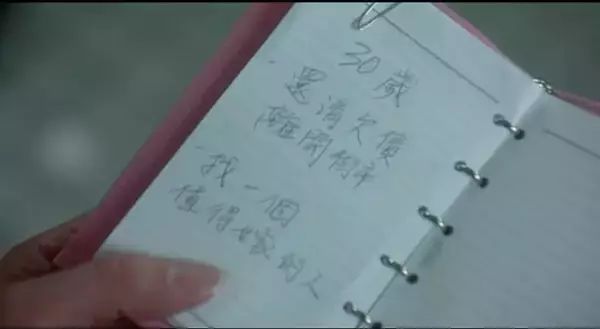 30歲
·還清欠債
離開
·找一個
值得嫁的人